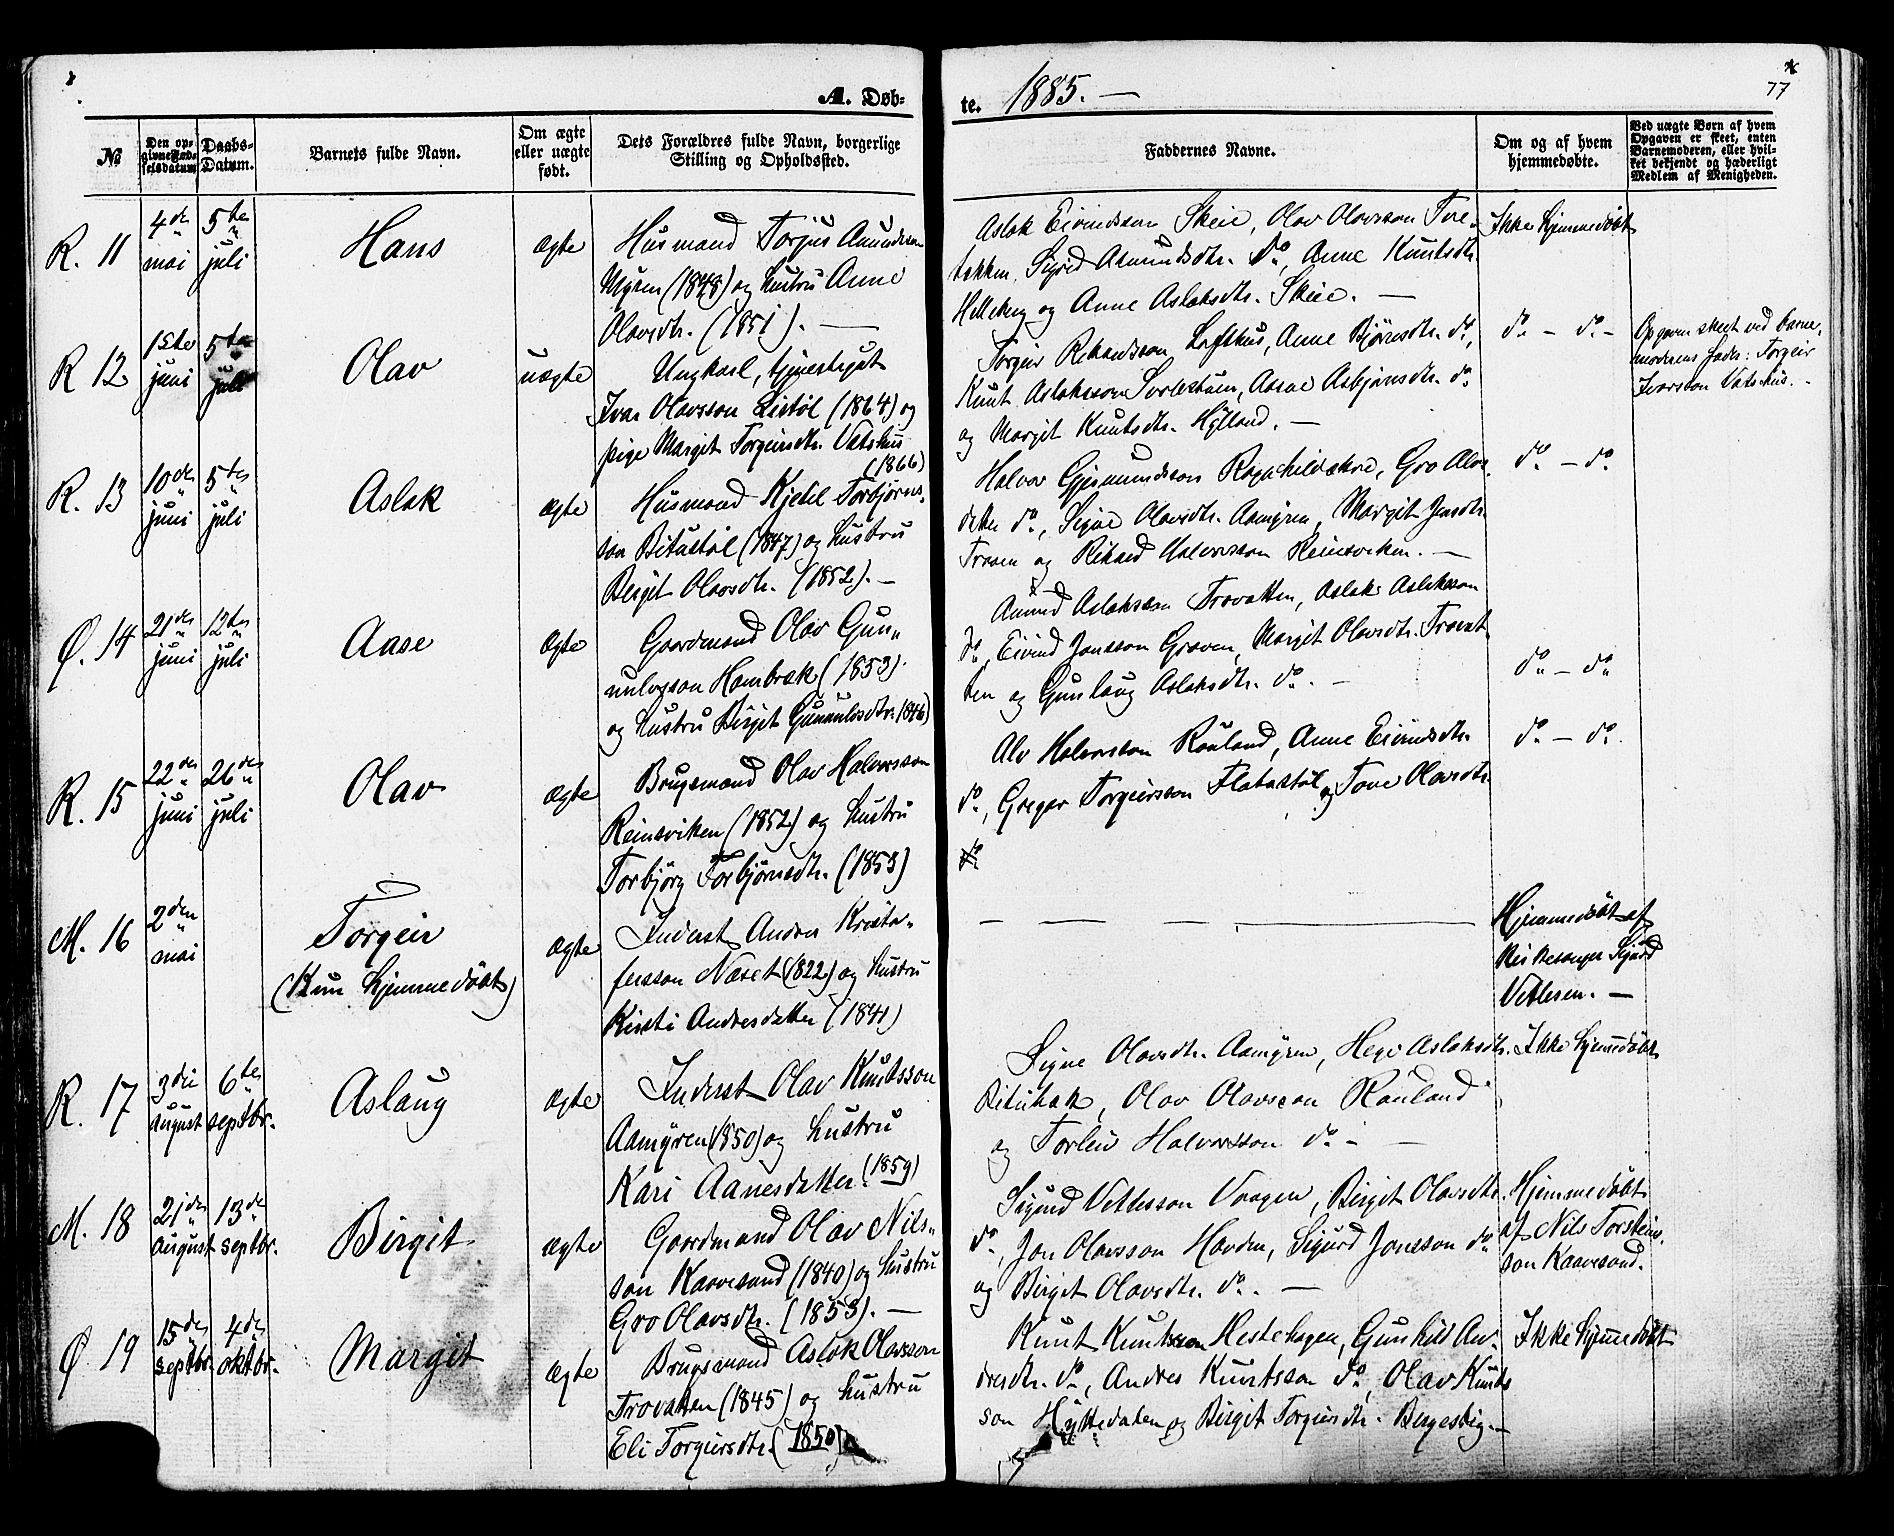 A. Døb-
te. 1885. —
77
№
Den op-
givne Fød-
selsdatum
Daabs-
Datum.
Barnets fulde Navn.
Om ægte
eller uægte
født.
Dets Forældres fulde Navn, borgerlige
Stilling og Opholdssted.
Faddernes Navne.
Om og af hvem
hjemmedøbte.
Ved uægte Børn af hvem
Opgaven er skeet, enten
Barnemoderen, eller hvil-
ket bekjendt og hæderligt
Medlem af Menigheden.
R. 11
4de mai
5te juli
Hans
ægte
Husmand Torjus Amundsson
(1848) og hustru Anne
Olavsdtr. (1851). —
Aslak Eivindsson Skeie, Olav Olavsson Tve-
Sigrid Asmundsdtr. do, Anne Knutsdtr.
Helleberg og Anne Aslaksdtr. Skeie. —
Ikke hjemmedøbt
R 12
1ste juni
5te juli
Olav
uægte
Ungkarl, tjenestegut
Ivar Olavsson Listøl (1864) og
pige Margit Torgeirsdtr. Vatshus
(1866)
Torgeir Rikardsson Lofthus, Anne Bjørnsdtr. do,
Knut Aslaksson Aasne Asbjønsdtr. do
og Margit Knutsdtr. Hylland. —
do — do —
Opgaven skeet ved barne-
moderens fader: Torgeir
Ivarsson Vatshus. —
R. 13
10de juni
5te juli
Aslak
ægte
Husmand Kjetil Torbjørns-
son Bitustøl (1847) og hustru
Birgit Olavsdtr. (1852). —
Halvor Gjermundsson Ragnhildskre, Gro Alvs-
datter do, Signe Olavsdtr. Aamyren, Margit Jonsdtr.
og Rikard Halvorsson Reinsviken. —
do — do
Ø. 14
21de juni
12te juli
Aase
ægte
Gaardmand Olav Gun-
nulvsson Hambræk (1853)
og hustru Birgit Gunnulvsdtr. (1846)
Amund Aslaksson Trovatten, Aslak Aslaksson
do, Eivind Jonsson Groven, Margit Olavsdtr. Trovat-
ten og Gunlaug Aslaksdtr. do. —
do — do
R. 15
22de juni
26de juli
Olav
ægte
Brugsmand Olav Halvorsson
Reinsviken (1852) og hustru
Torbjørg Torbjørnsdtr. (1853)
Alv Halvorsson Rauland, Anne Eivindsdtr.
do, Greger Torgeirsson Flatastøl og Tone Olavsdtr.
do
do — do
M. 16
2den mai
Torgeir
(Kun hjemmedøbt)
ægte
Inderst Andres Kristo-
fersson Næset (1822) og hustru
Kirsti Andresdatter (1841)
— — — —
Hjemmedøbt af
Kirkesanger Sigurd
Vetlesen. —
R. 17
3die august
6te septbr.
Aslaug
ægte
Inderst Olav Knutsson
Aamyren (1850) og hustru
Kari Aanesdatter. (1859)
Signe Olavsdtr. Aamyren, Hege Aslaksdtr.
Bitubak, Olav Olavsson Rauland
og Torleiv Halvorsson do —
Ikke hjemmedøbt
M. 18
21de august
13de septbr.
Birgit
ægte
Gaardmand Olav Nils-
son Kaavesand (1840) og hustru
Gro Olavsdtr. (1853). —
Sigurd Vetlesson Vaagen, Birgit Olavsdtr.
do, Jon Olavsson Hovden, Sigurd Jonsson do
og Birgit Olavsdtr. do. —
Hjemmedøbt
af Nils Torstein-
son Kaavesand.
Ø 19
15de septbr.
4de oktbr.
Margit
ægte
Brugsmand Aslak Olavsson
Trovatten (1845) og hustru
Eli Torgeirsdtr. (1850)
Knut Knutsson Hestehagen, Gunhild An-
dresdtr. do, Andres Knutsson do, Olav Knuts-
son Hyttedalen og Birgit Torgeirsdtr. Bergestig. —
Ikke hjemmedøbt